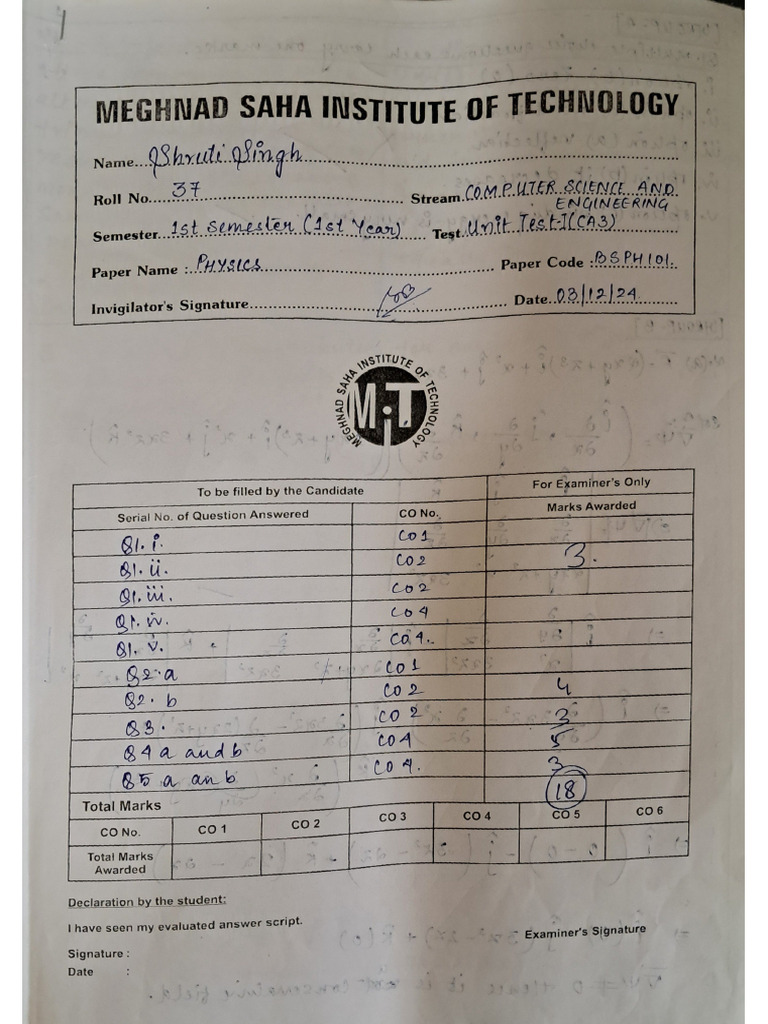 MEGHNAD SAHA INSTITUTE OF TECHNOLOGY
Name Shruti Singh
Roll No. 37 Stream COMPUTER SCIENCE AND ENGINEERING
Semester 1st Semester (1st Year) Test Unit Test-I (CA3)
Paper Name : PHYSICS Paper Code : BSPH101.
Invigilator's Signature Date 03/12/24
MEGHNAD SAHA INSTITUTE OF TECHNOLOGY
MiT
To be filled by the Candidate For Examiner's Only
Serial No. of Question Answered CO No. Marks Awarded
Q1. i. CO1
Q1. ii. CO2 3.
Q1. iii. CO2
Q1. iv. CO4
Q1. v. CO4.
Q2. a CO1
Q2. b CO2 4
Q3. CO2 3
Q4 a and b CO4 5
Q5 a an b CO4. 3
Total Marks 18
CO No. CO 1 CO 2 CO 3 CO 4 CO 5 CO 6
Total Marks Awarded
Declaration by the student:
I have seen my evaluated answer script.
Examiner's Signature
Signature :
Date :